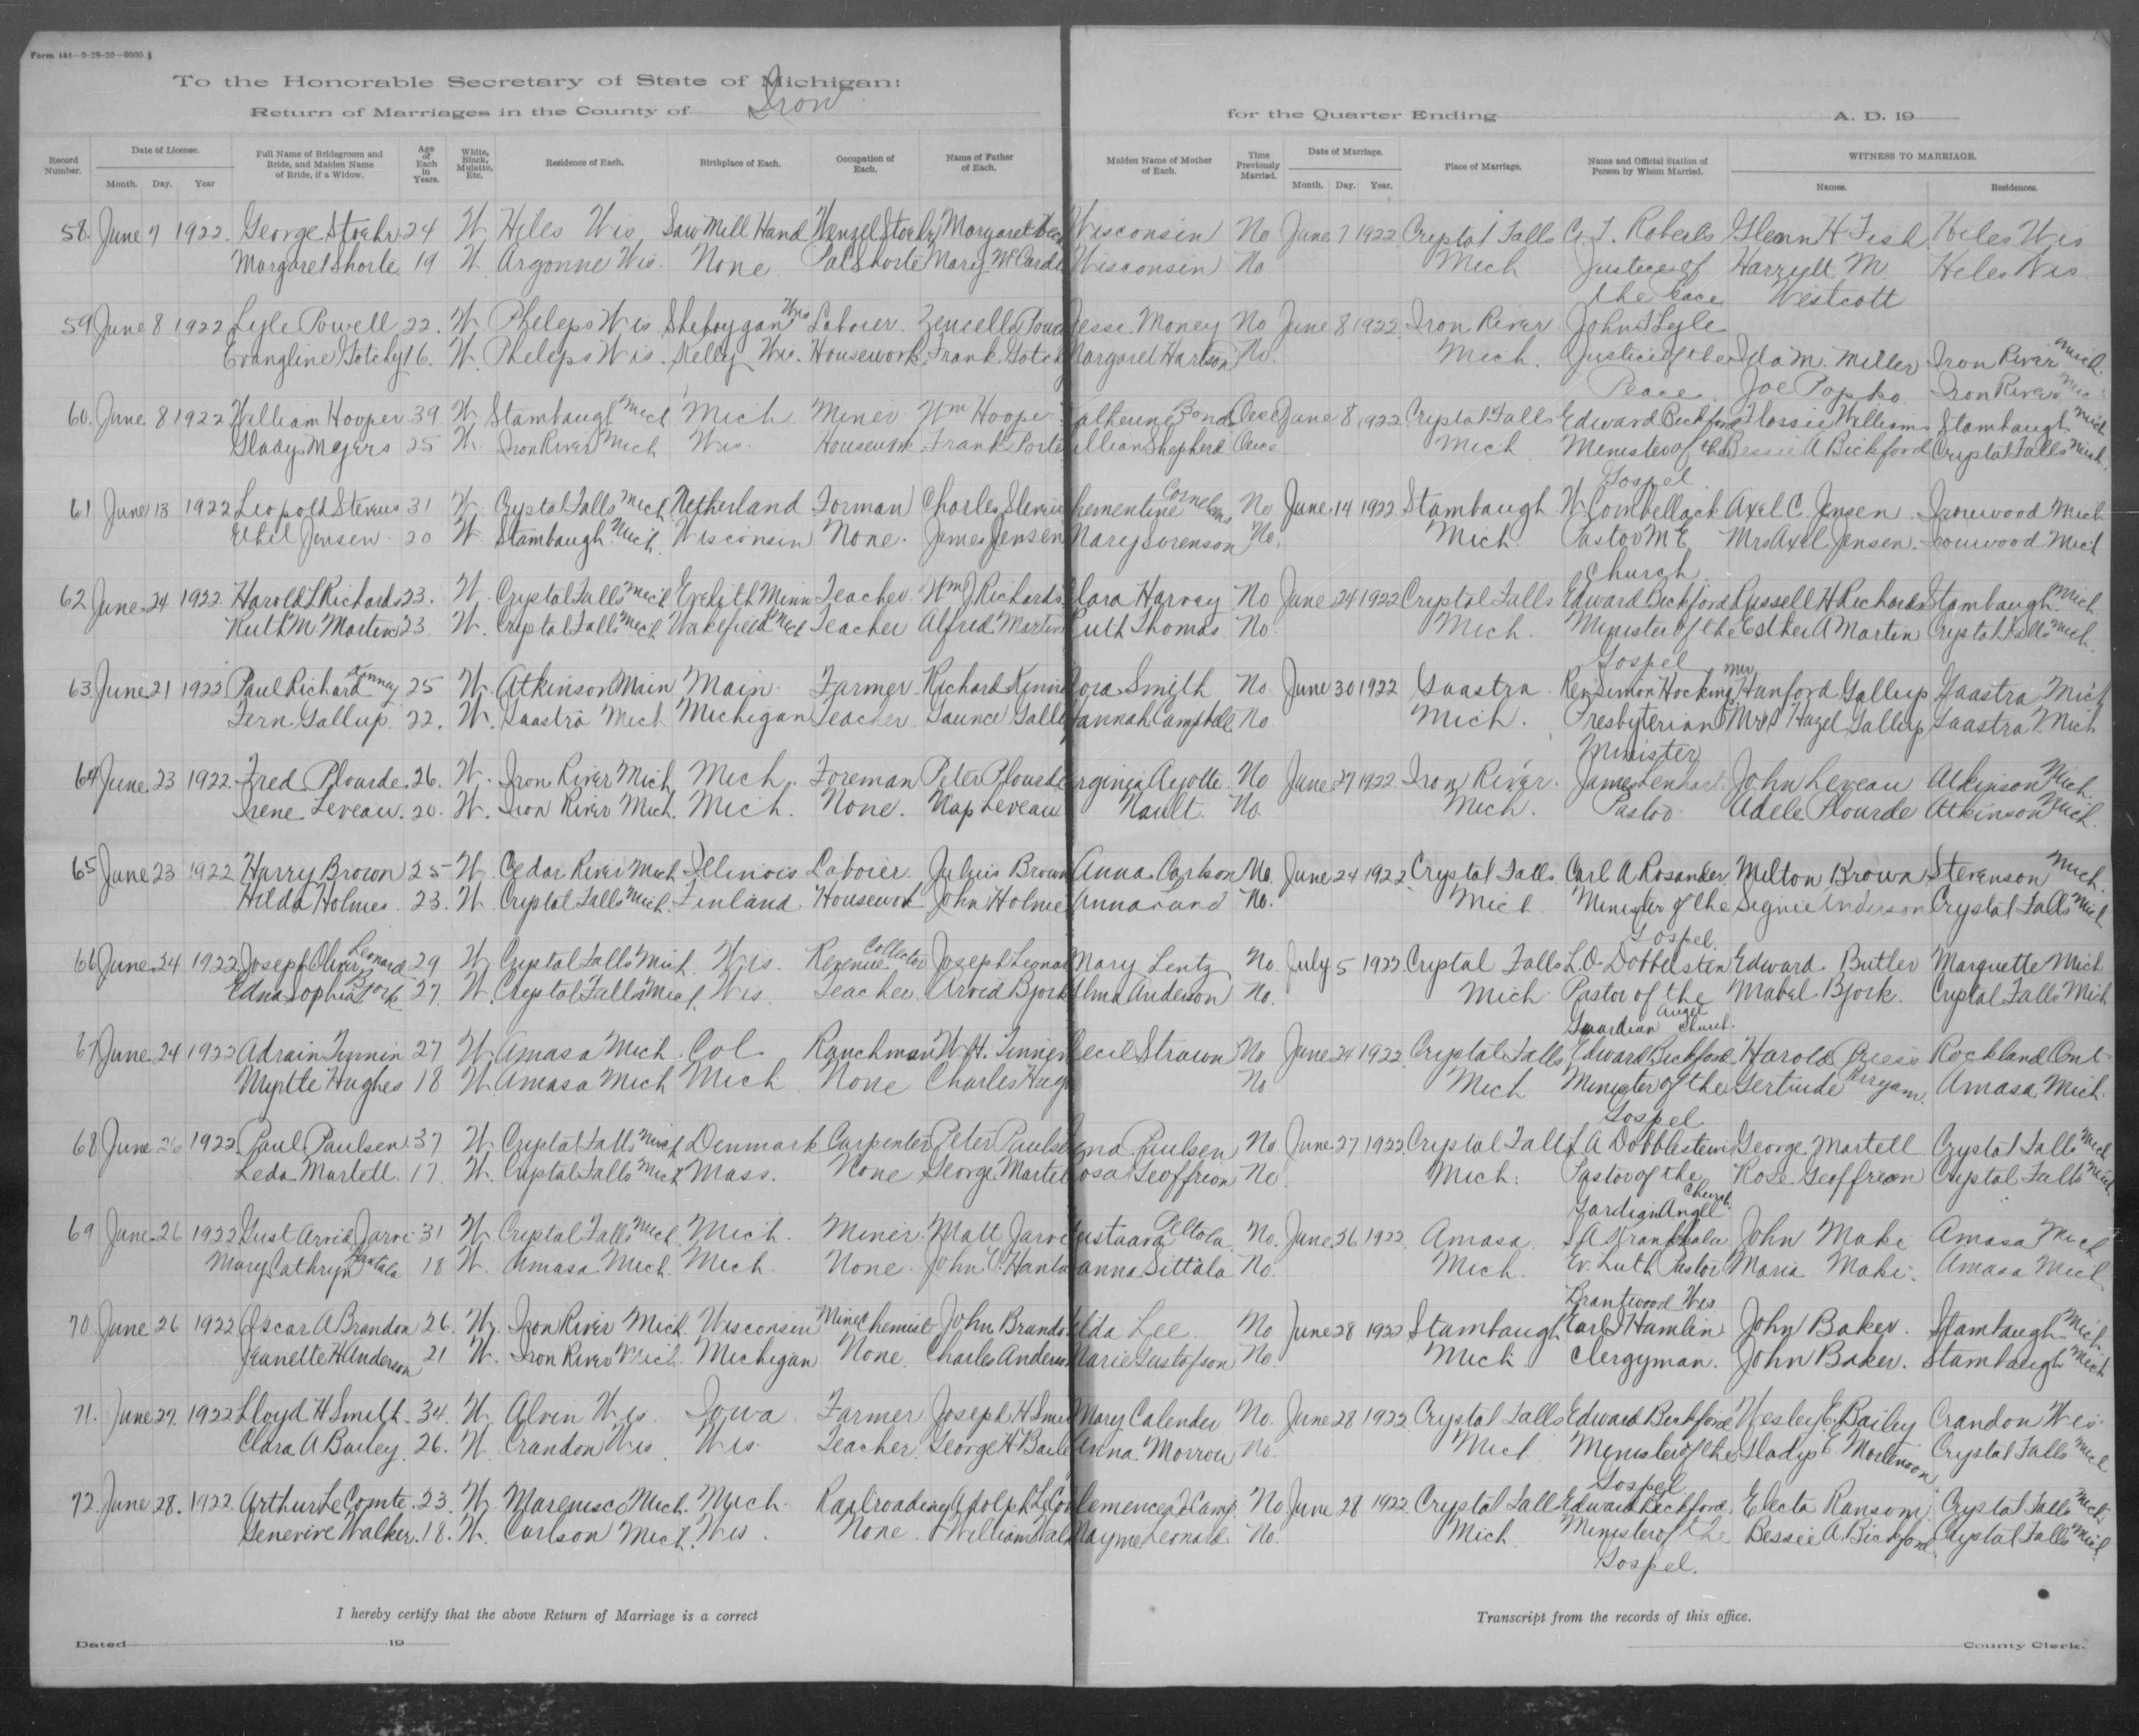 Form 141—9-28-20—6000 §
To the Honorable Secretary of State of Michigan:
Return of Marriages in the County of Iron for the Quarter Ending A. D. 19
Record Number. Date of License. Full Name of Bridegroom and Bride, and Maiden Name of Bride, if a Widow. Age of Each in Years. White, Black, Mulatto, Etc. Residence of Each. Birthplace of Each. Occupation of Each. Name of Father of Each. Maiden Name of Mother of Each. Time Previously Married. Date of Marriage. Place of Marriage. Name and Official Station of Person by Whom Married. WITNESS TO MARRIAGE.
Month. Day. Year Month. Day. Year. Names. Residences.
58. June 7 1922. George Stoehr 24 W. Hiles Wis. Saw Mill Hand Wenzel Stoehr Margaret Wisconsin No June 7 1922 Crystal Falls C. T. Roberts Glenn H Fish Hiles Wis
Margaret Shorte 19 W. Argonne Wis. None Pat Shorte Mary McCarde Wisconsin No Mich Justice of Harryett M. Hiles Wis.
the Peace Westcott
59 June 8 1922 Lyle Powell 22. W. Phelps Wis. Sheboygan Wis Laborer. Jesse Money No June 8 1922 Iron River John T Lyle
Evangline Gotchy 16. W. Phelps Wis. Kelly Wis. Housework Frank Gotch Margaret Harlson No. Mich. Justice of the Ida M. Miller Iron River Mich.
Peace. Joe Popko Iron River Mich
60. June 8 1922 William Hooper 39 W Stambaugh Mich Mich Miner Wm Hooper atherine Bond Once June 8 1922 Crystal Falls Edward Bickford Flossie Williams Stambaugh Mich
Glady Meyers 25 W. Iron River Mich Wis. Housework Frank Porte illian Shepherd Once Mich Minister of the Bessie A Bickford Crystal Falls Mich.
Gospel
61 June 13 1922 Leopold Stevens 31 W. Crystal Falls Mich Netherland Forman Charles Steven hementine Cornelens No June 14 1922 Stambaugh W. Combellack Axel C. Jensen. Ironwood Mich
Ethel Jensen 20 W. Stambaugh Mich. Wisconsin None. James Jensen Mary Sorenson No. Mich. Pastor M E Mrs Axel Jensen. Ironwood Mich
Church
62 June 24 1922. Harold L Richards 23. W. Crystal Falls Mich Eveleth Minn Teacher Wm J Richards lara Harvey No June 24 1922 Crystal Falls Edward Bickford Russell H Richards Stambaugh Mich
Ruth M Martens 23. W. Crystal Falls Mich Wakefield Mich Teacher Alfred Marten uth Thomas No. Mich. Minister of the Esther A Martin Crystal Falls Mich.
Gospel
63. June 21 1922 Paul Richard Kenney 25 W. Atkinson Main Main. Farmer Richard Kenne ora Smith No June 30 1922 Gaastra Rev Simon Hocking Mr Hanford Gallup Gaastra Mich
Fern Gallup. 22. W. Gaastra Mich. Michigan Teacher Gaunce Gallu annah Campbell No Mich. Presbyterian Mrs Hazel Gallup Gaastra Mich
Minister
64 June 23 1922. Fred Plourde. 26. W. Iron River Mich Mich. Foreman Peter Plourde rginia Ayotte. No June 27 1922 Iron River. James Lenhart John Leveau Atkinson Mich.
Irene Leveau. 20. W. Iron River Mich. Mich. None. Nap Leveau Nault. No. Mich. Pastor Adele Plourde Atkinson Mich.
65 June 23 1922 Harry Brown 25 W Cedar River Mich Illinois Laborer. Juluis Brown Anna Carlson No. June 24 1922 Crystal Falls Carl A Rosander Milton Brown Stevenson Mich.
Hilda Holmes 23. W. Crystal Falls Mich. Finland Housework John Holme Anna Lund No. Mich. Minister of the Signie Anderson Crystal Falls Mich
Gospel.
66 June 24 1922 Joseph Oliver Leonard 29 W Crystal Falls Mich. Wis. Revenue Collector Joseph Leonar Mary Lentz No. July 5 1922 Crystal Falls L. O. Dobbelsten Edward Butler Marquette Mich
Edna Sophia Bjork 27. W. Crystal Falls Mich. Wis. Teacher. Arvid Bjork Alma Anderson No. Mich Pastor of the Mabel Bjork. Crystal Falls Mich
Guardian Angel Church.
67 June 24 1922 Adrain Tennin 27 W. Amasa Mich. Col. Ranchman W. H. Tennien ecil Strawn No June 24 1922 Crystal Falls Edward Bickford Harold Preiss Rockland Ont
Myrtle Hughes 18 W. Amasa Mich Mich None Charles Hugh No Mich Minister of the Gertrude Perryam. Amasa Mich.
Gospel
68 June 26 1922 Paul Paulsen 37 W. Crystal Falls Mich Denmark Carpenter Peter Paulse ena Paulsen No. June 27 1922 Crystal Falls L A Dobblestein George Martell Crystal Falls Mich
Leda Martell. 17. W. Crystal Falls Mich Mass. None George Martel osa Geoffrion No Mich. Pastor of the Rose Geoffrion Crystal Falls Mich.
Gardian Angel Church.
69 June 26 1922 Gust Arvid Jarvi 31 W. Crystal Falls Mich. Mich. Miner. Matt Jarvi ustaava Peltola No. June 26 1922 Amasa John Maki Amasa Mich
Mary Cathryn Hantala 18 W. Amasa Mich. Mich. None. John O. Hanta anna Sittala No. Mich. Ev. Luth Pastor Maria Maki. Amasa Mich
Brantwood Wis.
70 June 26 1922 Oscar A Brandon 26. W. Iron River Mich. Wisconsin Mine Chemist John Brando lda Lee. No June 28 1922 Stambaugh Earl J Hamlin John Baker. Stambaugh Mich.
Jeanette H Anderson 21 W. Iron River Mich. Michigan None. Charles Anderso Marie Gustafson No Mich. Clergyman. John Baker. Stambaugh Mich
71. June 27. 1922 Lloyd H Smith. 34. W. Alvin Wis. Iowa Farmer Joseph H Smi Mary Calender No. June 28 1922 Crystal Falls Edward Bickford Wesley E. Bailey Crandon Wis.
Clara A Bailey. 26. W. Crandon Wis Wis. Teacher. George H Baile Anna Morrow No. Mich Minister of the Gladys E Mortenson Crystal Falls Mich
Gospel
72. June 28. 1922. Arthur Le Comte. 23. W. Marenisco Mich. Mich. Railroading Adolph LeCom lemence DeCamp No. June 28 1922 Crystal Falls Edward Bickford. Electa Ransom. Crystal Falls Mich.
Genevive Walker. 18. W. Carlson Mich. Wis. None. William Walk Mayme Leonard. No. Mich. Minister of the Bessie A Bickford. Crystal Falls Mich.
Gospel.
I hereby certify that the above Return of Marriage is a correct Transcript from the records of this office.
Dated 19 County Clerk.